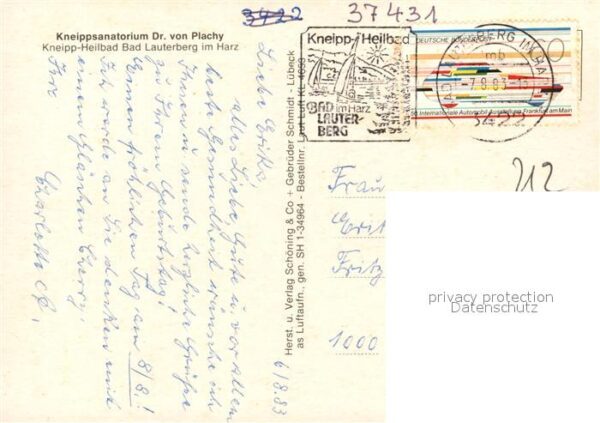 3422
37431
Kneippsanatorium Dr. von Plachy
Kneipp-Heilbad Bad Lauterberg im Harz
Kneipp-Heilbad
BAD im Harz
LAUTER-
BERG
DEUTSCHE BUNDESPOST
Internationale Automobil-Ausstellung Frankfurt am Main
LAUTERBERG IM HARZ
mb
-7.8.83
3422
212
Liebe Erika,
alles Liebe Gute u. vor allem
beste Gesundheit wünsche ich
Ihnen u. sende herzliche Grüße
zu Ihrem Geburtstag!
Einen fröhlichen Tag am 8/8.!
Ich werde an Sie denken mit
einem Gläschen Cherry.
Ihre
Charlotte
6/8.83
Herst. u. Verlag Schöning & Co + Gebrüder Schmidt - Lübeck
as Luftaufn., gen. SH 1-34964 - Bestellnr. Laut Luft KL 4693
Frau
Fritz
1000
privacy protection
Datenschutz